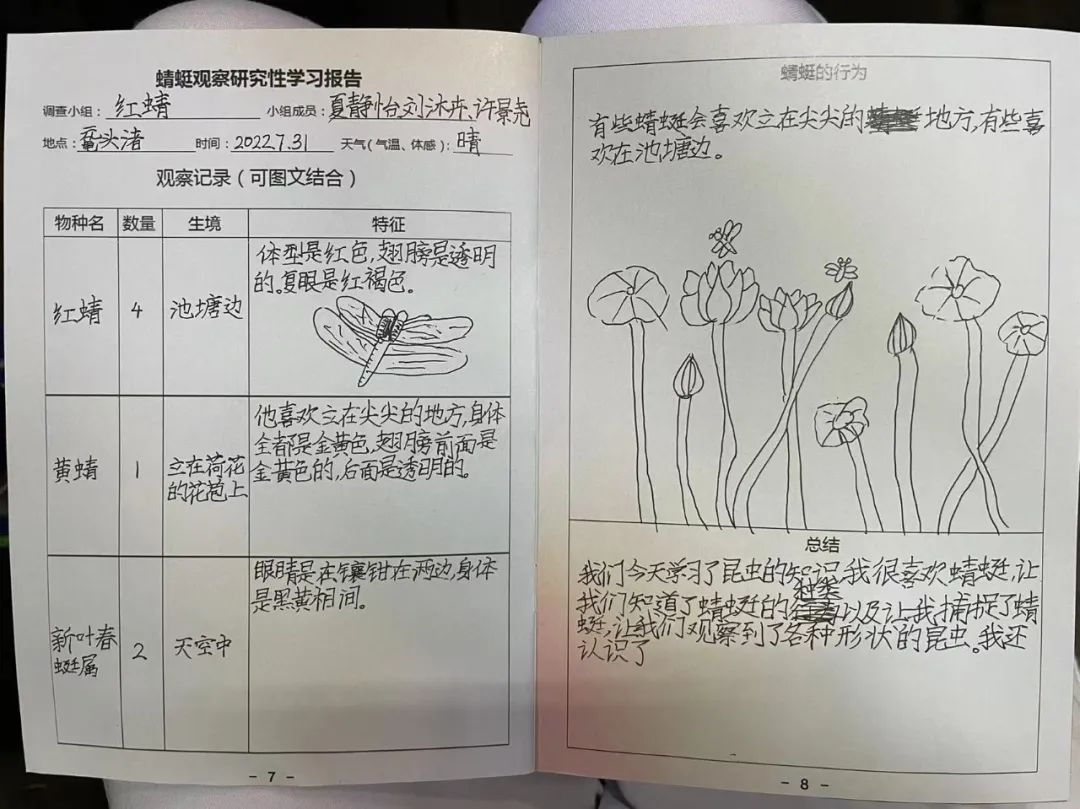 蜻蜓观察研究性学习报告
调查小组：红蜻 小组成员：夏静怡、刘沐卉、许景尧
地点：鼋头渚 时间：2022.7.31 天气（气温、体感）：晴
观察记录（可图文结合）
物种名 数量 生境 特征
体型是红色，翅膀是透明
的。复眼是红褐色。
红蜻 4 池塘边
他喜欢立在尖尖的地方，身体
全都是金黄色，翅膀前面是
金黄色的，后面是透明的。
黄蜻 1 立在荷花
的花苞上
眼睛是在镶钳在两边，身体
是黑黄相间。
新叶春
蜓属 2 天空中
- 7 -
蜻蜓的行为
有些蜻蜓会喜欢立在尖尖的地方，有些喜
欢在池塘边。
总结
我们今天学习了昆虫的知识，我很喜欢蜻蜓，让
我们知道了蜻蜓的种类以及让我捕捉了蜻
蜓，让我们观察到了各种形状的昆虫。我还
认识了
- 8 -